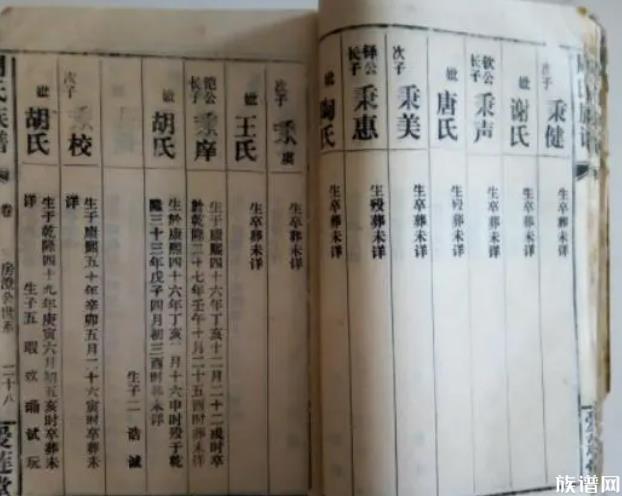 次子 秉健 生卒葬未详
娍 谢氏 生卒葬未详
钦公长子 秉声 生卒葬未详
娍 唐氏 生殁葬未详
次子 秉美 生卒葬未详
铎公长子 秉惠 生殁葬未详
娍 陶氏 生卒葬未详
次子 秉虞 生卒葬未详
娍 王氏 生卒葬未详
长子 秉庠 生於康熙四十六年丁亥十二月二十二戌时卒
於乾隆二十七年壬午十月二十五酉时葬未详
娍 胡氏 生於康熙四十六年丁亥 月十六申时殁于乾
隆三十三年戊子四月初三酉时葬未详
生子二 浩 诚
次子 秉校 生于康熙五十年辛卯五月二十六寅时卒葬未
详
娍 胡氏 生于乾隆四十九年庚寅六月初五亥时卒葬未
详 生子五 瑕 欢 瑀 试 玩
氏族谱
卷 房澄公世系 二十八
爱莲堂
族谱网
www.zupu.cn